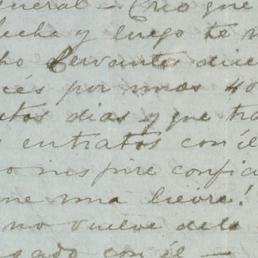 neral — Crio que
lucha y luego te v
ho Cervantes dice
cés por unos 40
stos dias y que tra
s entratos con él
o inspire confia
ne una liebre!
no vuelve de la
sado con él —